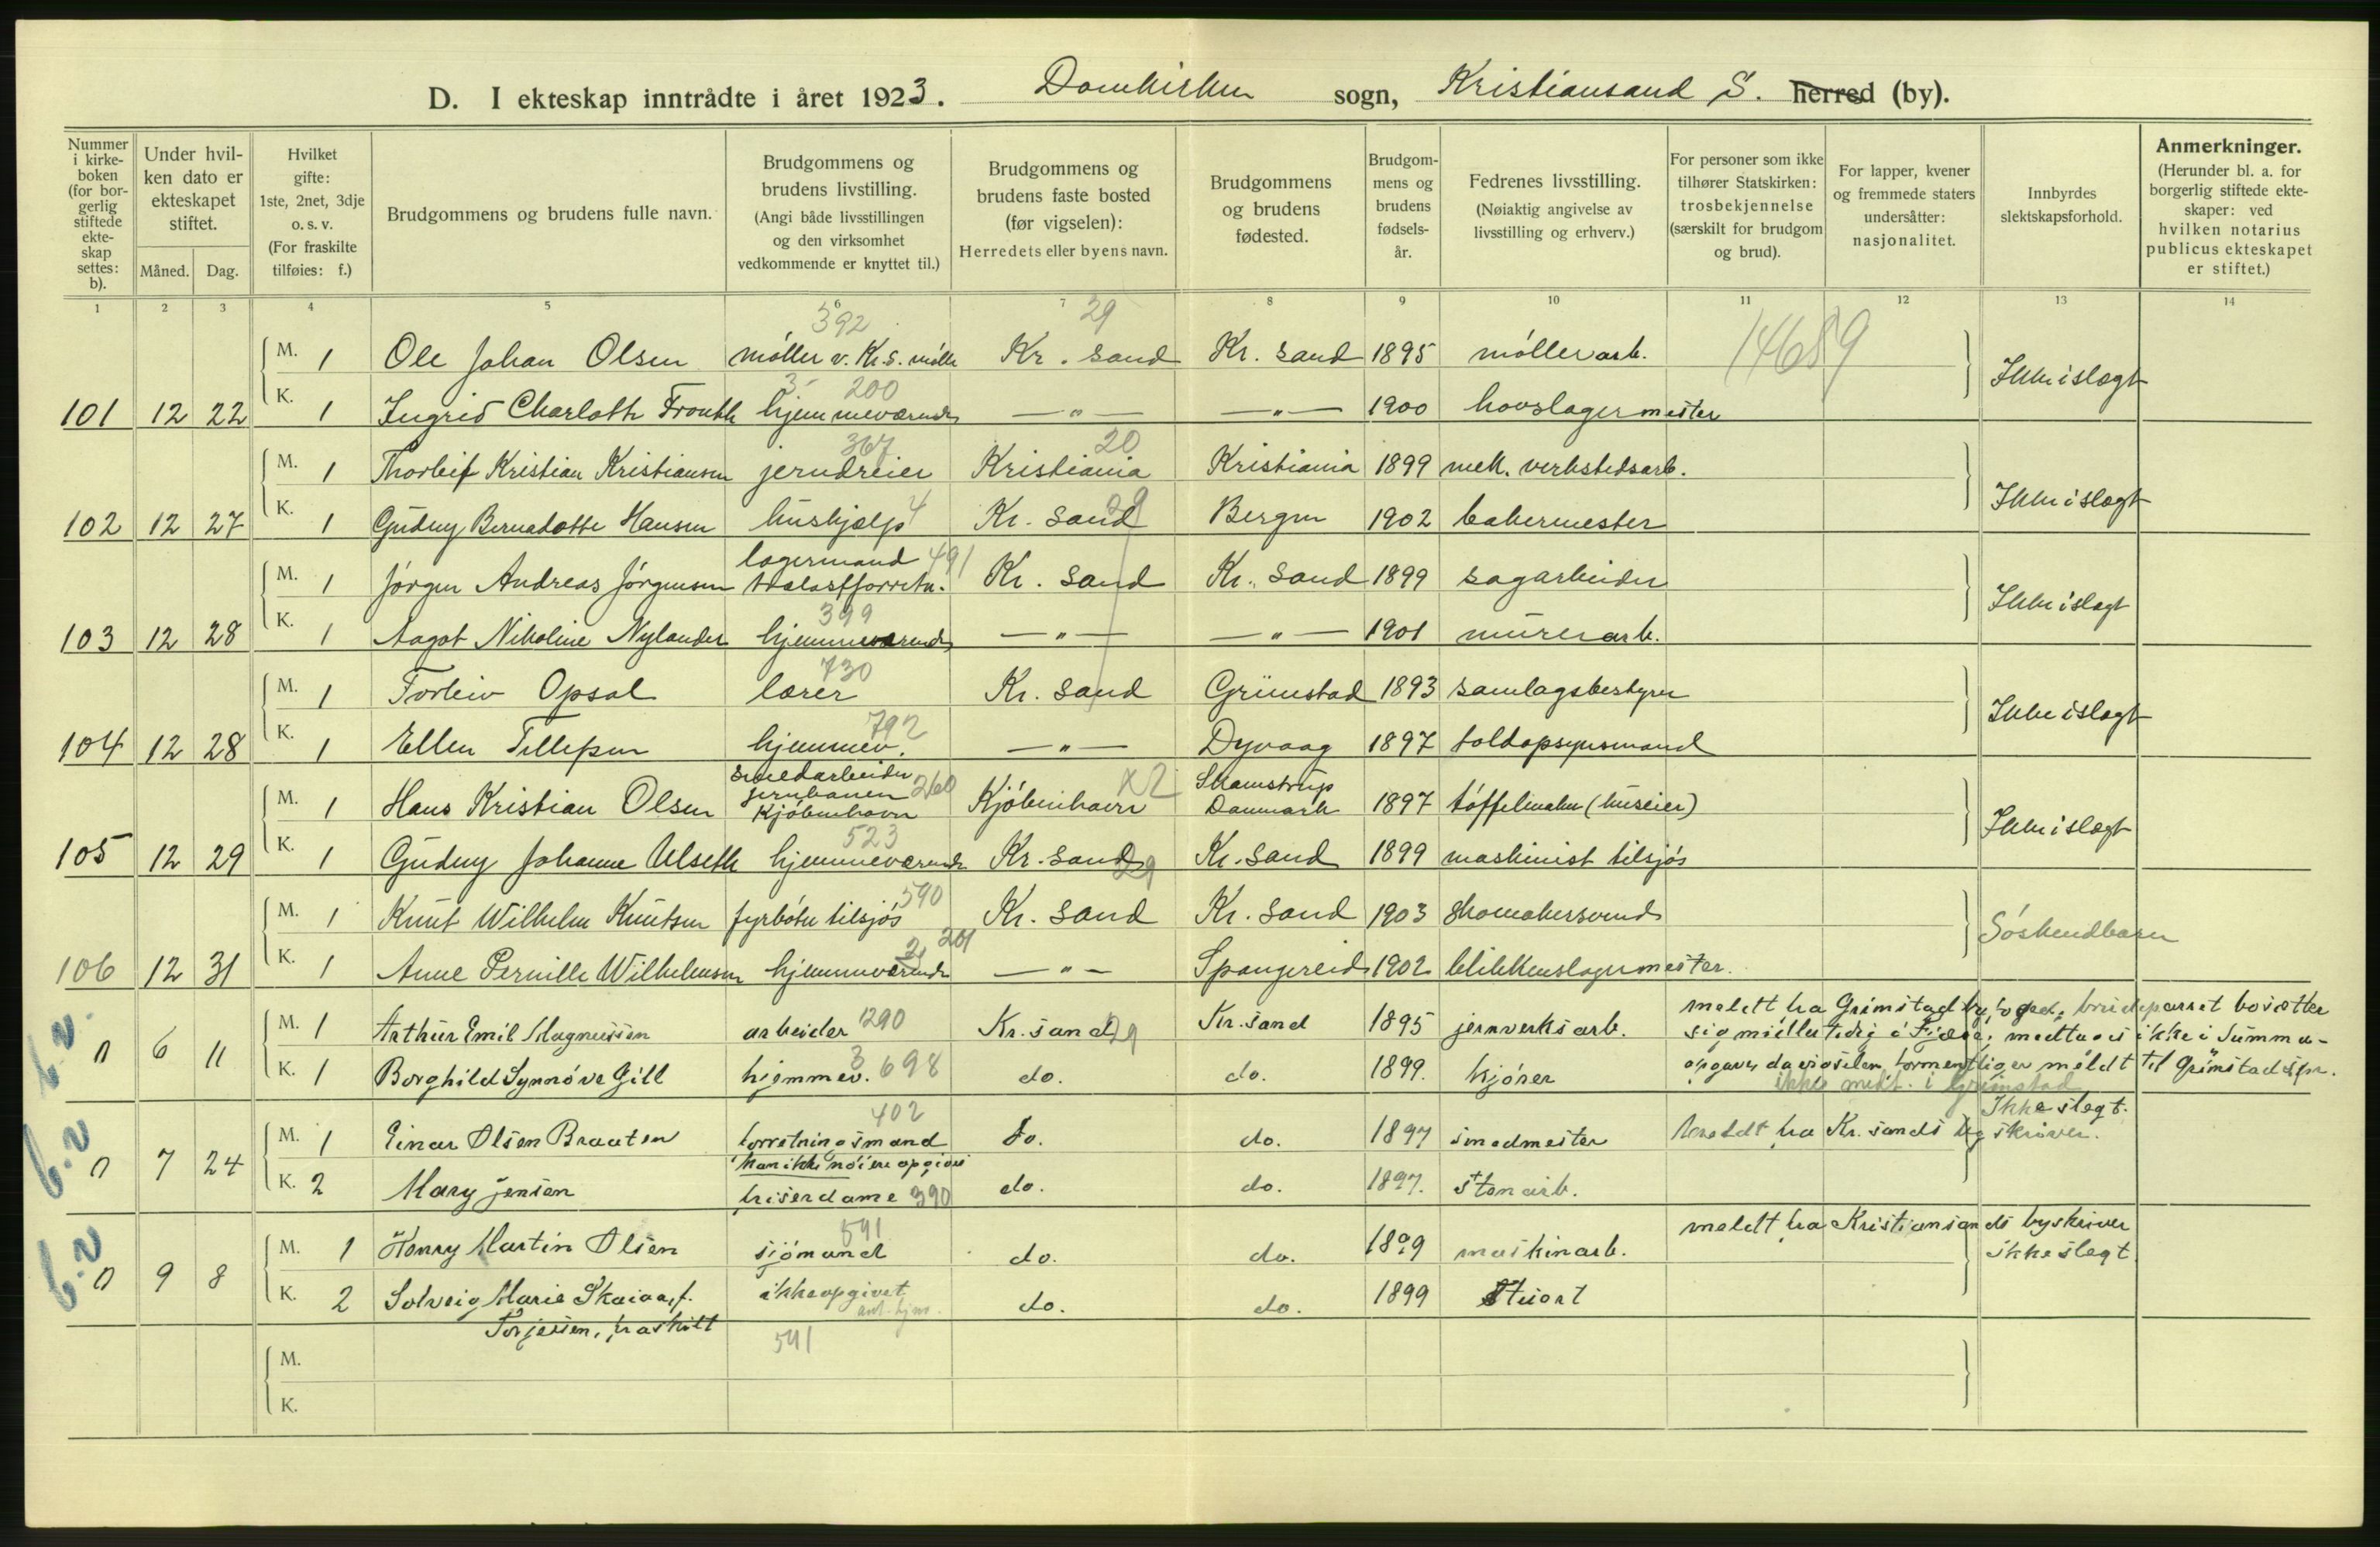 D. I ekteskap inntrådte i året 1923. Domkirken sogn, Kristiansand S. herred (by).
Nummer i kirkeboken (for borgerlig stiftede ekteskap settes: b).
Under hvilken dato er ekteskapet stiftet.
Måned. Dag.
Hvilket gifte: 1ste, 2net, 3dje o. s. v. (For fraskilte tilføies: f.)
Brudgommens og brudens fulle navn.
Brudgommens og brudens livstilling. (Angi både livsstillingen og den virksomhet vedkommende er knyttet til.)
Brudgommens og brudens faste bosted (før vigselen): Herredets eller byens navn.
Brudgommens og brudens fødested.
Brudgommens og brudens fødselsår.
Fedrenes livsstilling. (Nøiaktig angivelse av livsstilling og erhverv.)
For personer som ikke tilhører Statskirken: trosbekjennelse (særskilt for brudgom og brud).
For lapper, kvener og fremmede staters undersåtter: nasjonalitet.
Innbyrdes slektskapsforhold.
Anmerkninger. (Herunder bl. a. for borgerlig stiftede ekteskaper: ved hvilken notarius publicus ekteskapet er stiftet.)
1 2 3 4 5 6 7 8 9 10 11 12 13 14
392 29
M. 1 Ole Johan Olsen møller v. Kr.S. mølle Kr. sand Kr. sand 1895 møllerarb. 14689
3- 200
101 12 22 K. 1 Ingrid Charlotte Trouth hjemmeværende —"— —"— 1900 hovslagermester Ikke i slægt
367 20
M. 1 Thorleif Kristian Kristiansen jerndreier Kristiania Kristiania 1899 mek. verkstedsarb.
4 29
102 12 27 K. 1 Gudny Bernadotte Hansen hushjælp Kr. sand Bergen 1902 bakermester Ikke i slægt
lagermand 491
M. 1 Jørgen Andreas Jørgensen Kr. sand Kr. sand 1899 sagarbeider
399
103 12 28 K. 1 Aagot Nikoline Nylander hjemmeværende —"— —"— 1901 murerarb. Ikke i slægt
730
M. 1 Torleiv Opsal lærer Kr. sand Grimstad 1893 samlagsbestyrer
792
104 12 28 K. 1 Ellen Tellefsen hjemmev. —"— Dyvaag 1897 toldopsynsmand Ikke i slægt
smedarbeider
jernbanen 260 X2 Skamstrup
M. 1 Hans Kristian Olsen Kjøbenhavn Kjøbenhavn Danmark 1897 tøffelmaker (huseier)
523
105 12 29 K. 1 Gudny Johanne Ulseth hjemmeværende Kr. sand 29 Kr. sand 1899 maskinist tilsjøs Ikke i slægt
590
M. 1 Knut Wilhelm Knutsen fyrbøter tilsjøs Kr. sand Kr. sand 1903 skomakersvend
201
106 12 31 K. 1 Anne Pernille Wilhelmsen hjemmeværende —"— Spangereid 1902 blikkenslagermester. Søskendbarn
b.v.
M. 1 Arthur Emil Magnussen arbeider 1290 Kr. sand 29 Kr. sand 1895 jernverksarb. meldt fra Grimstad byfoged; brudeparret bosætter
sig midlertidig i; medtages ikke i Summa-
0 6 11 K. 1 Borghild Synnøve Gill hjemmev. 3 698 do. do. 1899. kjører opgave da vigselen formentlig er meldt til Grimstad spr.
ikke medt. i Grimstad
b.v
402 Ikke slegt.
M. 1 Einar Olsen Braaten forretningsmand do. do. 1897 smedmester meldt fra Kr. sands byskriver.
kan ikke nøiere opgives
0 7 24 K. 2 Mary Jensen friserdame 390 do. do. 1897. stenarb.
b.v
591
M. 1 Henry Martin Olsen sjømand do. do. 1899 maskinarb. meldt fra Kristiansands byskriver
ikke slegt
0 9 8 K. 2 Solveig Marie Skaiaa, f. ikke opgivet do. do. 1899 Stuert
ant. hjem.
Torjesen, fraskilt
541
M.
K.